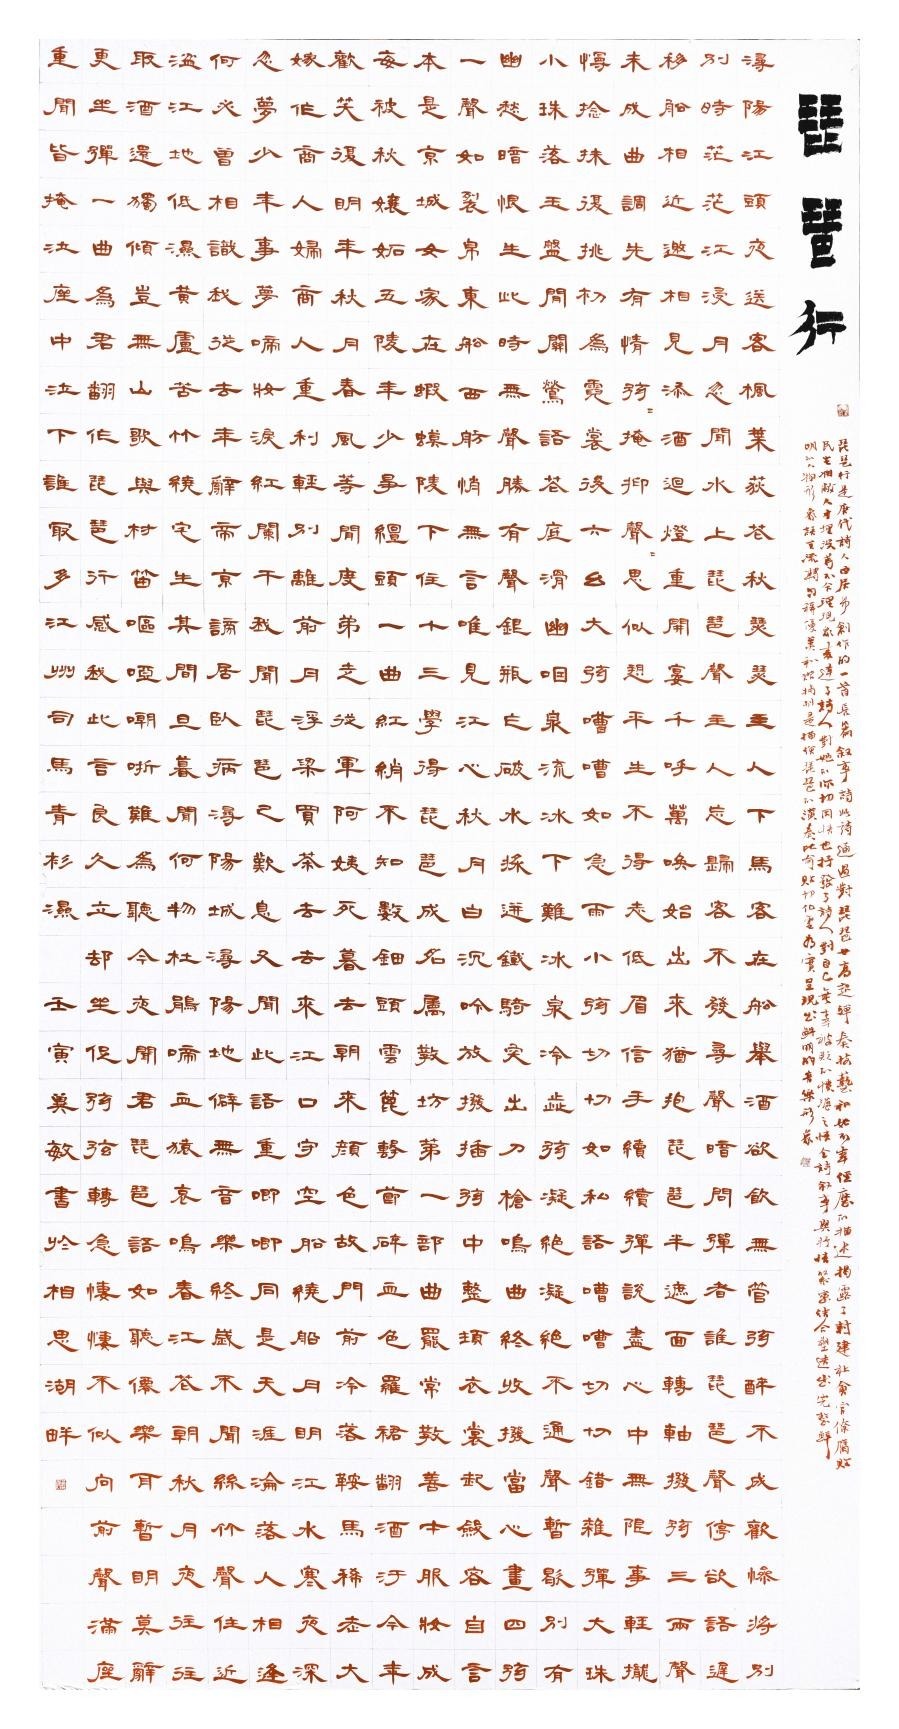 琵琶行
琵琶行是唐代詩人白居易創作的一首長篇叙事詩此詩通過對琵琶女高超彈奏技藝和她不幸經歷的描述揭露了封建社會官僚腐敗
民生凋敝人才埋没等不合理現象表達了詩人對她的深切同情也抒發了詩人對自己無辜被貶的憤懣之情全詩叙事與抒情緊密結合塑造出完整鮮
明的人物形象語言流轉匀稱優美和諧特別是描繪琵琶的演奏比喻貼切化虛為實呈現出鮮明的音樂形象
潯陽江頭夜送客楓葉荻花秋瑟瑟主人下馬客在船舉酒欲飲無管弦醉不成歡慘將別
別時茫茫江浸月忽聞水上琵琶聲主人忘歸客不發尋聲暗問彈者誰琵琶聲停欲語遲
移船相近邀相見添酒迴燈重開宴千呼萬喚始出來猶抱琵琶半遮面轉軸撥弦三兩聲
未成曲調先有情弦〻掩抑聲〻思似愬平生不得志低眉信手續續彈說盡心中無限事輕攏
慢捻抹復挑初為霓裳後六幺大弦嘈嘈如急雨小弦切切如私語嘈嘈切切錯雜彈大珠
小珠落玉盤間關鶯語花底滑幽咽泉流冰下難冰泉冷澀弦凝絕凝絕不通聲暫歇別有
幽愁暗恨生此時無聲勝有聲銀瓶乍破水漿迸鐵騎突出刀槍鳴曲終收撥當心畫四弦
一聲如裂帛東船西舫悄無言唯見江心秋月白沉吟放撥插弦中整頓衣裳起斂容自言
本是京城女家在蝦蟆陵下住十三學得琵琶成名屬教坊第一部曲罷常教善才服妝成
每被秋孃妬五陵年少爭纏頭一曲紅綃不知數鈿頭雲篦擊節碎血色羅裙翻酒汙今年
歡笑復明年秋月春風等閒度弟走從軍阿姨死暮去朝來顏色故門前冷落鞍馬稀老大
嫁作商人婦商人重利輕別離前月浮梁買茶去去來江口守空船繞船月明江水寒夜深
忽夢少年事夢啼妝淚紅闌干我聞琵琶已歎息又聞此語重唧唧同是天涯淪落人相逢
何必曾相識我從去年辭帝京謫居臥病潯陽城潯陽地僻無音樂終歲不聞絲竹聲住近
湓江地低濕黃蘆苦竹繞宅生其間旦暮聞何物杜鵑啼血猿哀鳴春江花朝秋月夜往往
取酒還獨傾豈無山歌與村笛嘔啞嘲哳難為聽今夜聞君琵琶語如聽僊樂耳暫明莫辭
更坐彈一曲為君翻作琵琶行感我此言良久立却坐促弦弦轉急悽悽不似向前聲滿座
重聞皆掩泣座中泣下誰最多江州司馬青衫濕 壬寅冀敏書於相思湖畔